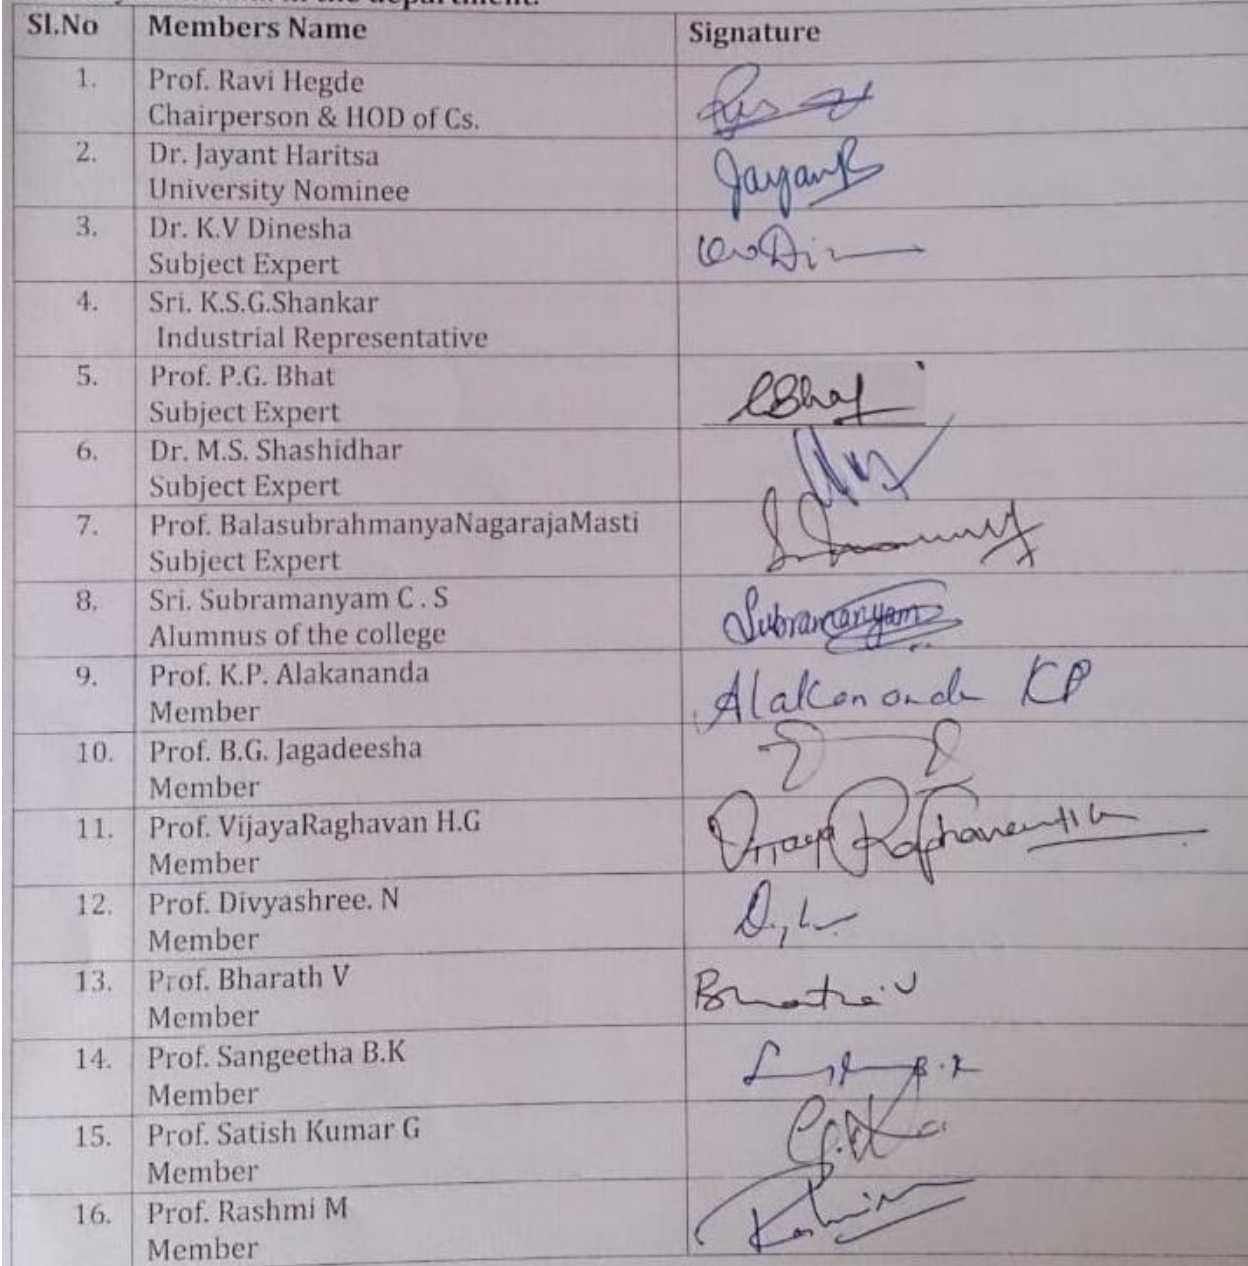 in the department.
Sl.No Members Name Signature
1. Prof. Ravi Hegde
Chairperson & HOD of Cs.
2. Dr. Jayant Haritsa
University Nominee
3. Dr. K.V Dinesha
Subject Expert
4. Sri. K.S.G.Shankar
Industrial Representative
5. Prof. P.G. Bhat
Subject Expert
6. Dr. M.S. Shashidhar
Subject Expert
7. Prof. BalasubrahmanyaNagarajaMasti
Subject Expert
8. Sri. Subramanyam C . S Subramanyam
Alumnus of the college
9. Prof. K.P. Alakananda
Member Alakananda KP
10. Prof. B.G. Jagadeesha
Member
11. Prof. VijayaRaghavan H.G
Member
12. Prof. Divyashree. N
Member
13. Prof. Bharath V
Member
14. Prof. Sangeetha B.K
Member
15. Prof. Satish Kumar G
Member
16. Prof. Rashmi M
Member